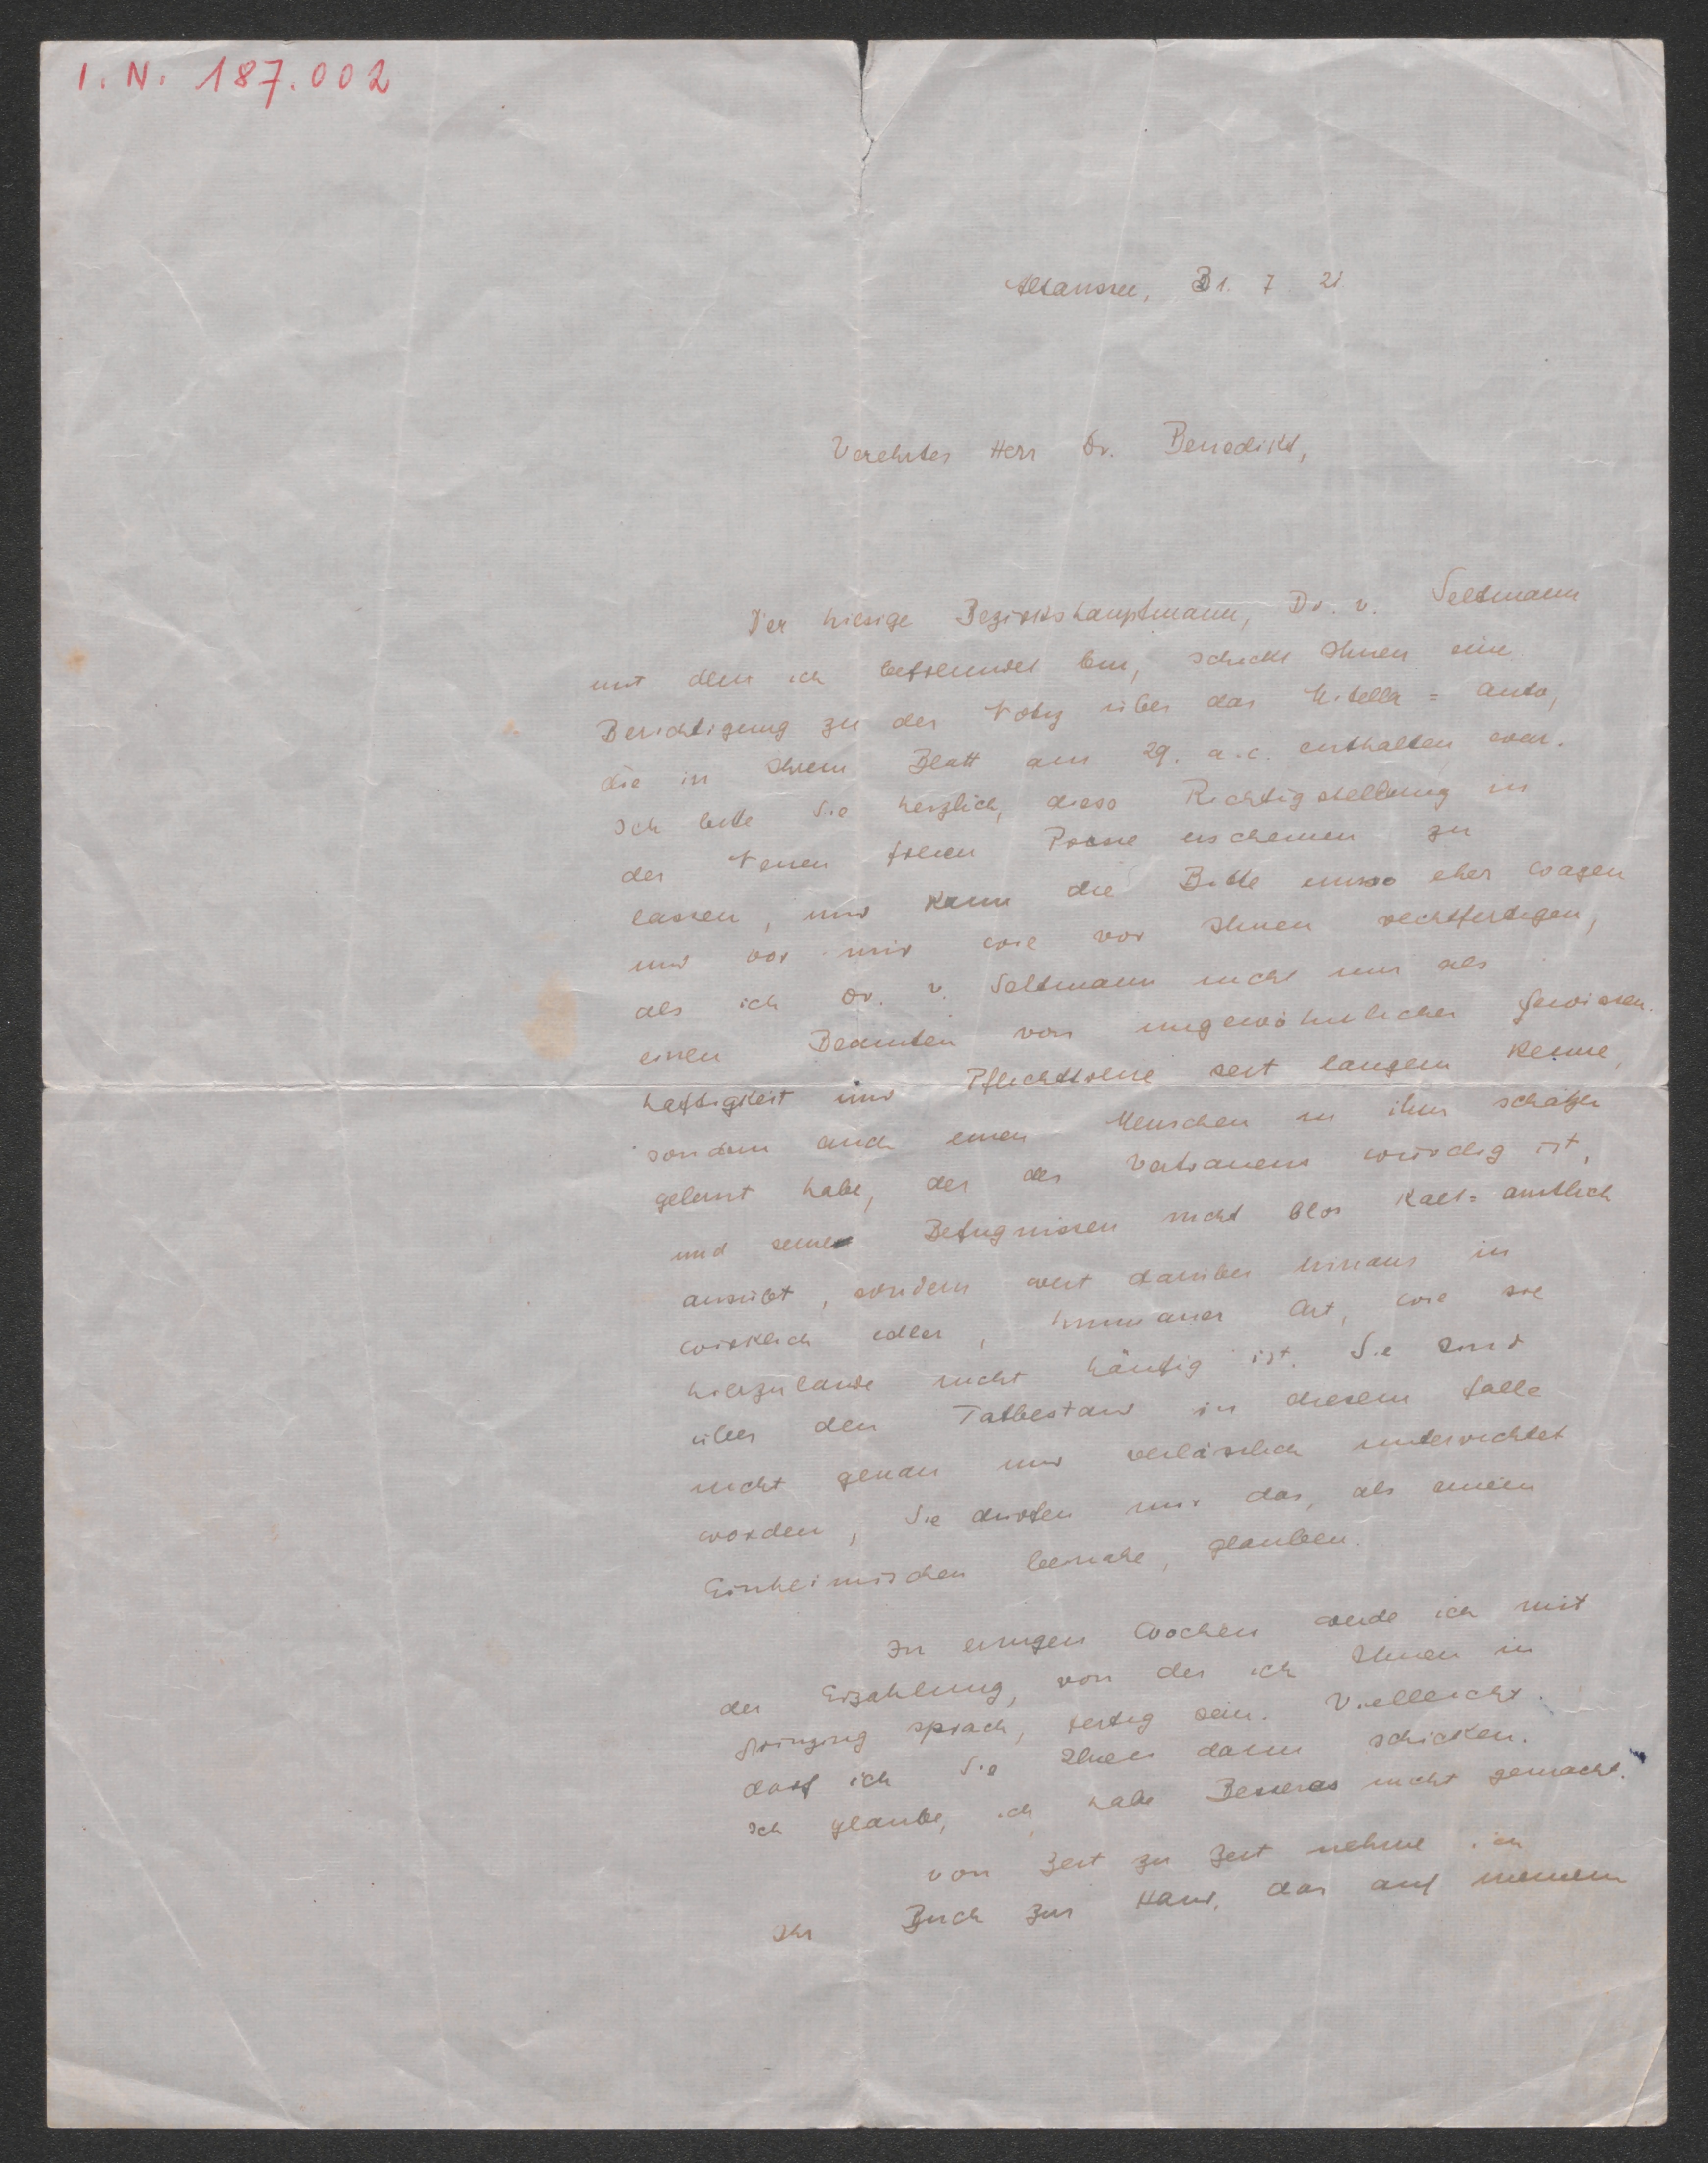 I.N. 187.002
Altaussee, 31. 7. 21.
Verehrter Herr Dr. Benedikt,
Der hiesige Bezirkshauptmann, Dr. v. Seltmann
mit dem ich befreundet bin, schickt Ihnen eine
Berichtigung zu der Notiz über das = Auto,
die in Ihrem Blatt am 29. a.c. enthalten war.
Ich bitte Sie herzlich, diese Richtigstellung in
der Neuen freien Presse erscheinen zu
lassen, und kann die Bitte umso eher wagen
und vor mir wie vor Ihnen rechtfertigen,
als ich Dr. v. Seltmann nicht nur als
einen Beamten von ungewöhnlicher Gewissen-
haftigkeit und Pflichttreue seit langem kenne,
sondern auch einen Menschen in ihm schätzen
gelernt habe, der des Vertrauens würdig ist,
und seine Befugnissen nicht blos kalt=amtlich
ausübt, sondern weit darüber hinaus in
wirklich edler, humaner Art, wie sie
hierzulande nicht häufig ist. Sie sind
über den Tatbestand in diesem falle
nicht genau und verlässlich unterrichtet
worden, Sie dürfen mir das, als einem
Einheimischen beinahe, glauben.
In einigen Wochen werde ich mit
der Erzählung, von der ich Ihnen in
Grinzing sprach, fertig sein. Vielleicht
darf ich Sie Ihnen dann schicken.
Ich glaube, ich habe Besseres nicht gemacht.
Von Zeit zu Zeit nehme ich
Ihr Buch zur Hand, das auf meinem